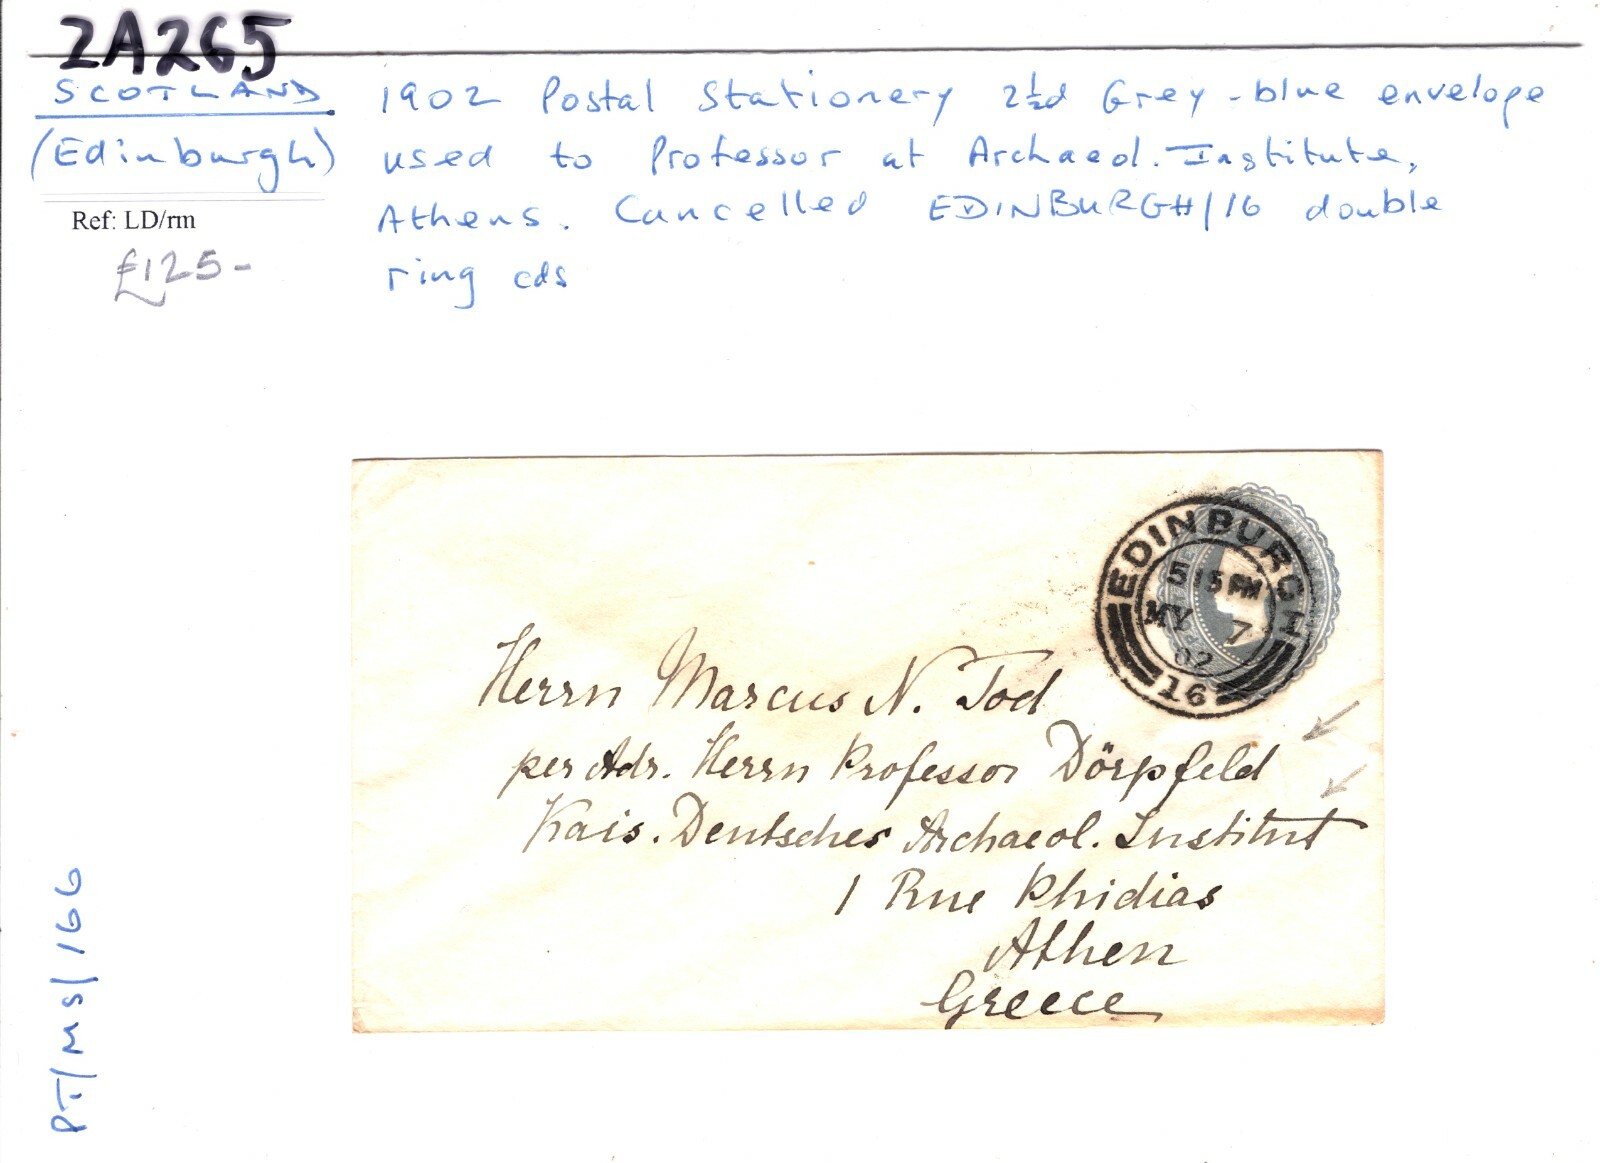 2A265
SCOTLAND
(Edinburgh)
Ref: LD/rm
£125-
1902 Postal Stationery 2½d Grey-blue envelope
used to Professor at Archaeol. Institute,
Athens. Cancelled EDINBURGH/16 double
ring cds
EDINBURGH
5 15 PM
MY 7
02
16
Herrn Marcus N. Tod
per Adr. Herrn Professor Dörpfeld
Kais. Deutsches Archaeol. Institut
1 Rue Phidias
Athen
Greece
PT/MS/166